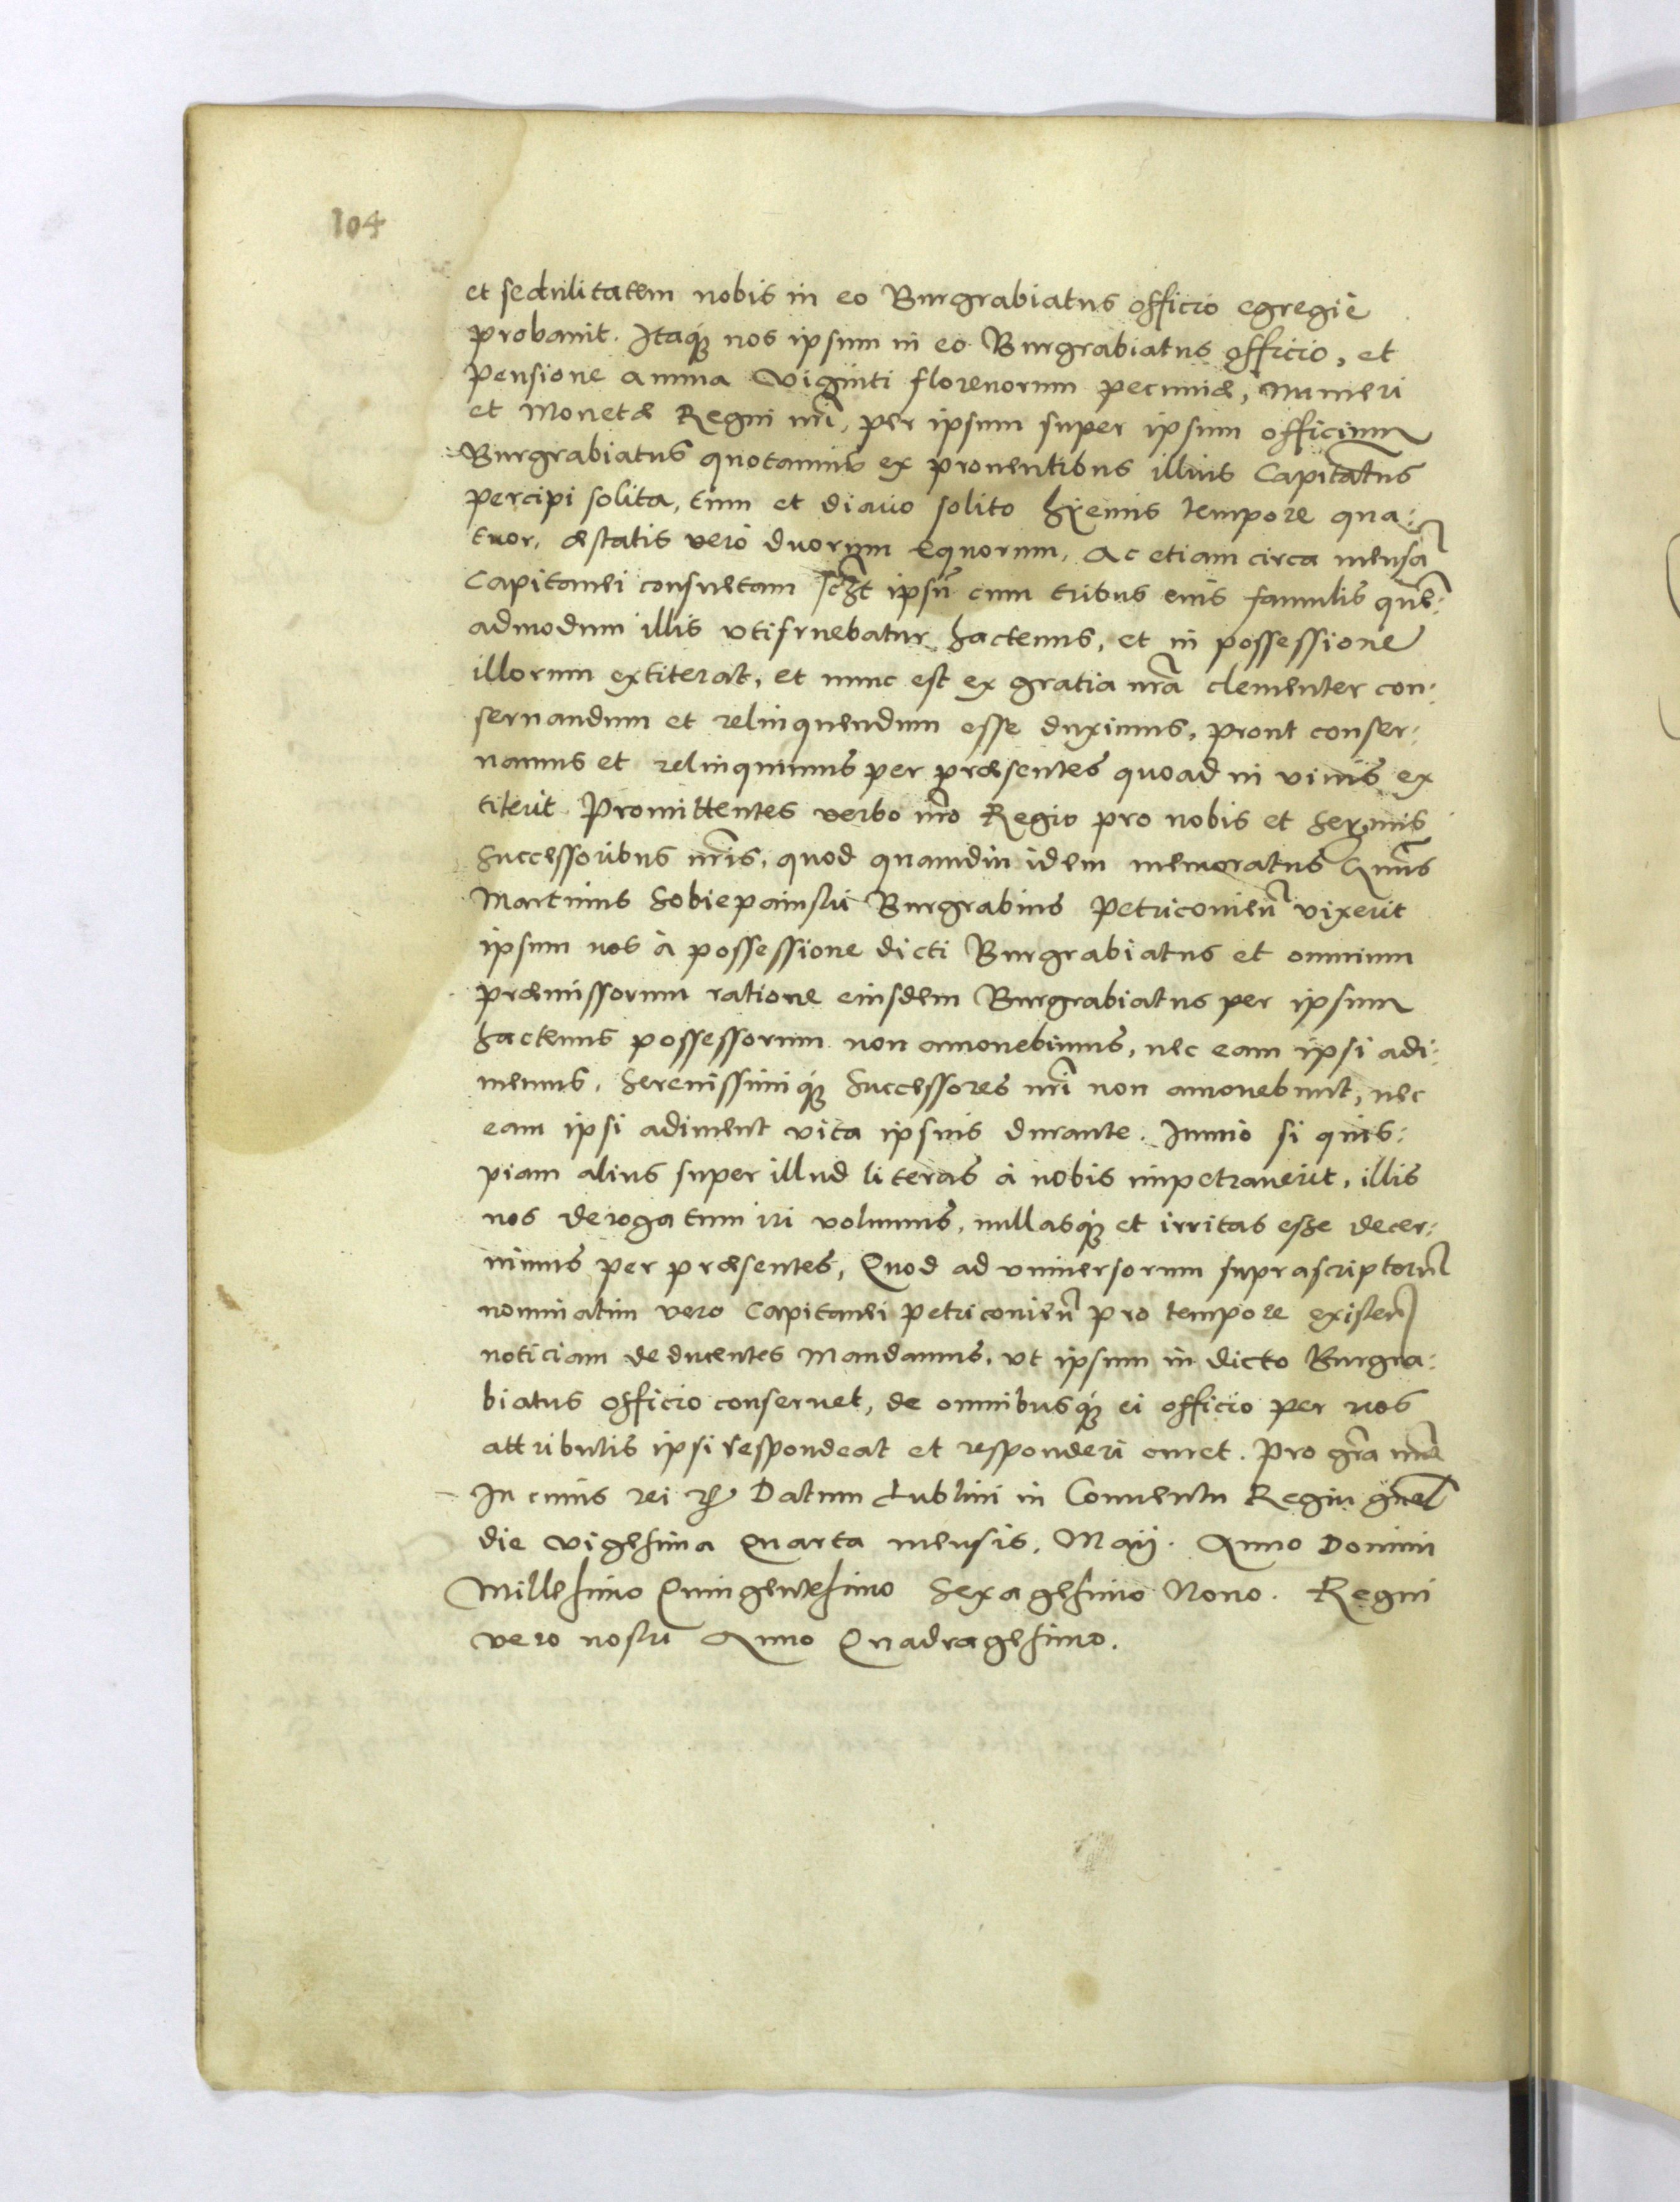 104
et sedulitatem nobis in eo Burgrabiatus officio egregiè
probauit. Itaq́ꝫ nos ipsum in eo Burgrabiatus officio, et
pensione annua viginti florenorum pecuniæ, Numeri
et Monetæ Regni nr̃i, per ipsum super ipsum officium
Burgrabiatus quotannis ex prouentibus illius Capitatus
percipi solita, tum et diario solito hÿemis tempore qua:
tuor, æstatis vero duorum Equorum, Ac etiam circa mensã
Capitanei consuetam ipsũ cum tribus eius famulis quẽ:
admodum illis vtifruebatur hactenus, et in possessione
illorum extiterat, et nunc est ex gratia nr̃a clementer con:
seruandum et relinquendum esse duximus, prout conser:
uamus et relinquimus per præsentes quoad in viuis ex
titerit. Promittentes verbo nr̃o Regio pro nobis et Serñmis
Successoribus nr̃is, quod quamdiu idem memoratus
Martinus Sobiepainski Burgrabius Petriconieñ vixerit
ipsum nos à possessione dicti Burgrabiatus et omnium
præmissorum ratione eiusdem Burgrabiatus per ipsum
hactenus possessorum non amouebimus, nec eam ipsi adi:
memus, Serenissimiq́ꝫ Successores nr̃i non amouebunt, nec
eam ipsi adiment vita ipsius durante. Immo si quis:
piam alius super illud literas à nobis impetrauerit, illis
nos derogatum iri volumus, nullasq́ꝫ et irritas esse decer:
nimus per præsentes, Quod ad vniuersorum suprascriptorũ
nominatim vero Capitanei Petriconieñ pro tempore existeñ
noticiam deducentes Mandamus, vt ipsum in dicto Burgra:
biatus officio conseruet, de omnibusq́ꝫ ei officio per nos
attributis ipsi respondeat et responderi curet. Pro gr̃a nr̃a
In cuius rei ꝛc̃ Datum Lublini in Conuentu Regni gñal
die vigesima Quarta mensis, Maij. Anno Domini
Millesimo Quingentesimo Sexagesimo Nono. Regni
vero nostri Anno Quadragesimo.